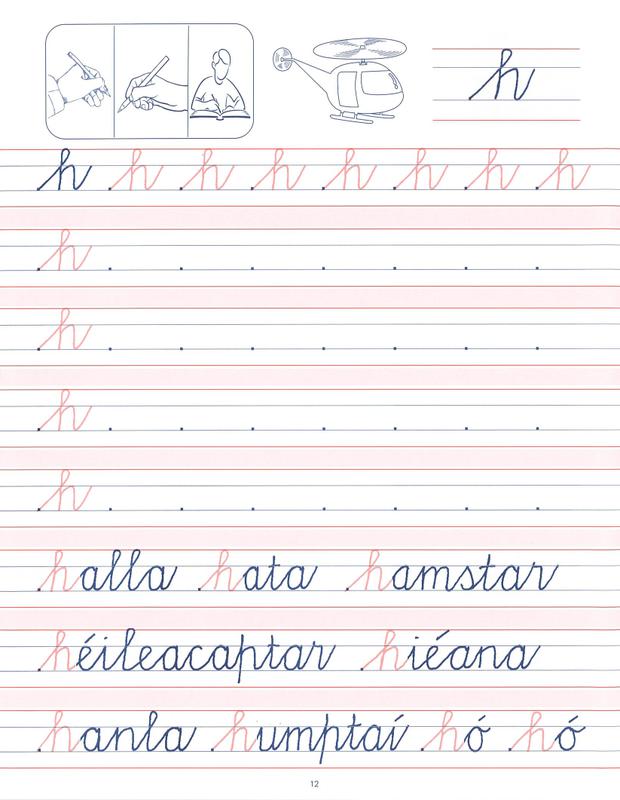 h
h h h h h h h h
h
h
h
h
halla hata hamstar
héileacaptar hiéana
hanla humptaí hó hó
12